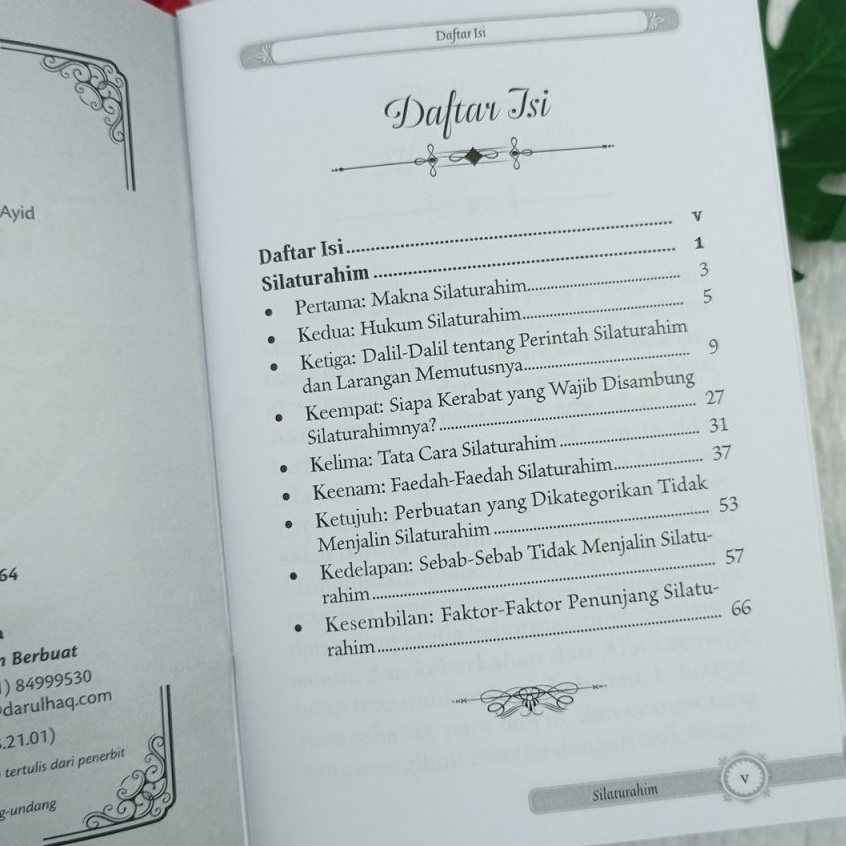 Ayid
64
n Berbuat
) 84999530
darulhaq.com
.21.01)
tertulis dari penerbit
g-undang
Daftar Isi
Daftar Isi
Daftar Isi.................... v
Silaturahim .................... 1
• Pertama: Makna Silaturahim.................... 3
• Kedua: Hukum Silaturahim.................... 5
• Ketiga: Dalil-Dalil tentang Perintah Silaturahim
dan Larangan Memutusnya.................... 9
• Keempat: Siapa Kerabat yang Wajib Disambung
Silaturahimnya? .................... 27
• Kelima: Tata Cara Silaturahim .................... 31
• Keenam: Faedah-Faedah Silaturahim.................... 37
• Ketujuh: Perbuatan yang Dikategorikan Tidak
Menjalin Silaturahim .................... 53
• Kedelapan: Sebab-Sebab Tidak Menjalin Silatu-
rahim .................... 57
• Kesembilan: Faktor-Faktor Penunjang Silatu-
rahim.................... 66
Silaturahim
v